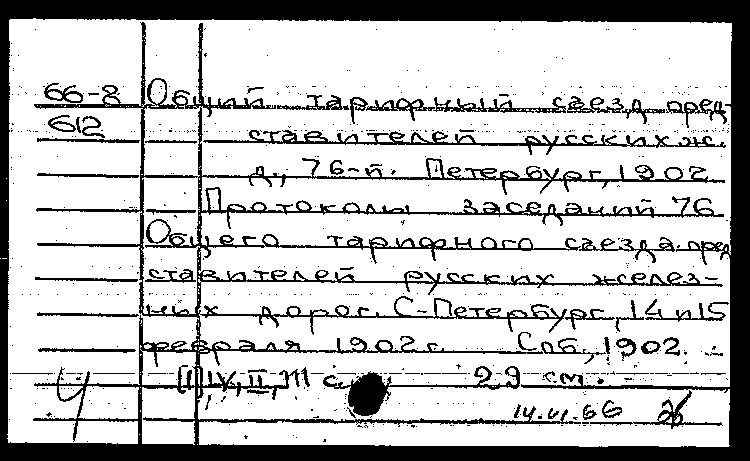 66-8 Общий тарифный съезд пред-
612 ставителей русских ж.
д., 76-й. Петербург, 1902
Протоколы заседаний 76
Общего тарифного съезда пред
ставителей русских желез-
ных дорог. С-Петербург, 14 и 15
февраля 1902 г. Спб., 1902.
[I], IV, II, III с. 29 см.
14.VI.66